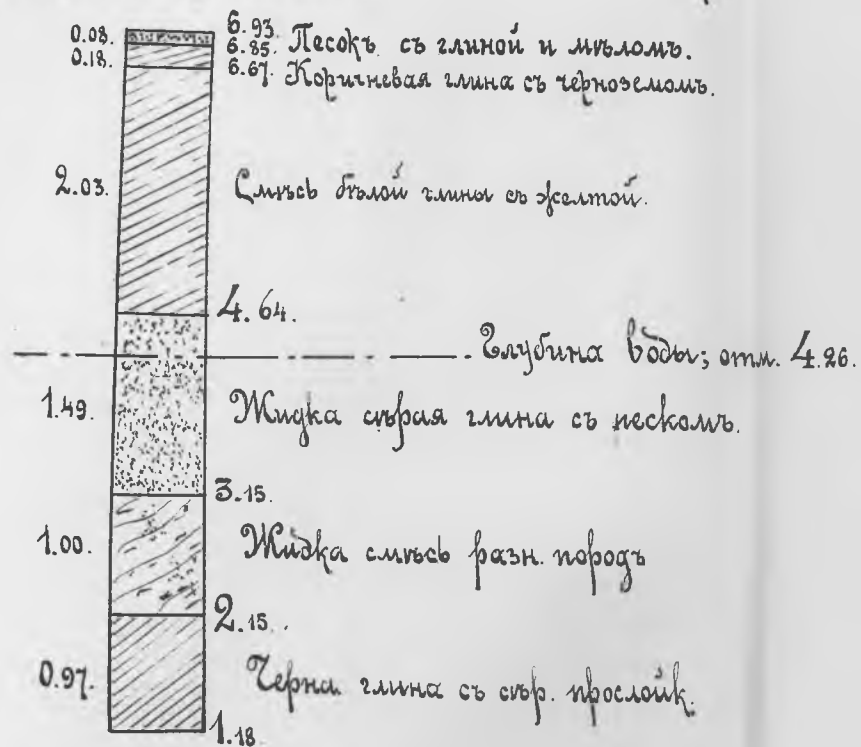 0.08. 6.93.
6.85. Песокъ съ глиной и мѣломъ.
0.18. 6.67. Коричневая глина съ черноземомъ.
2.03. Смѣсь бѣлой глины съ желтой.
4.64.
Глубина воды; отм. 4.26.
1.49. Жидка сѣрая глина съ пескомъ.
3.15.
1.00. Жидка смѣсь разн. породъ
2.15.
0.97. Черна глина съ сѣр. прослойк.
1.18.